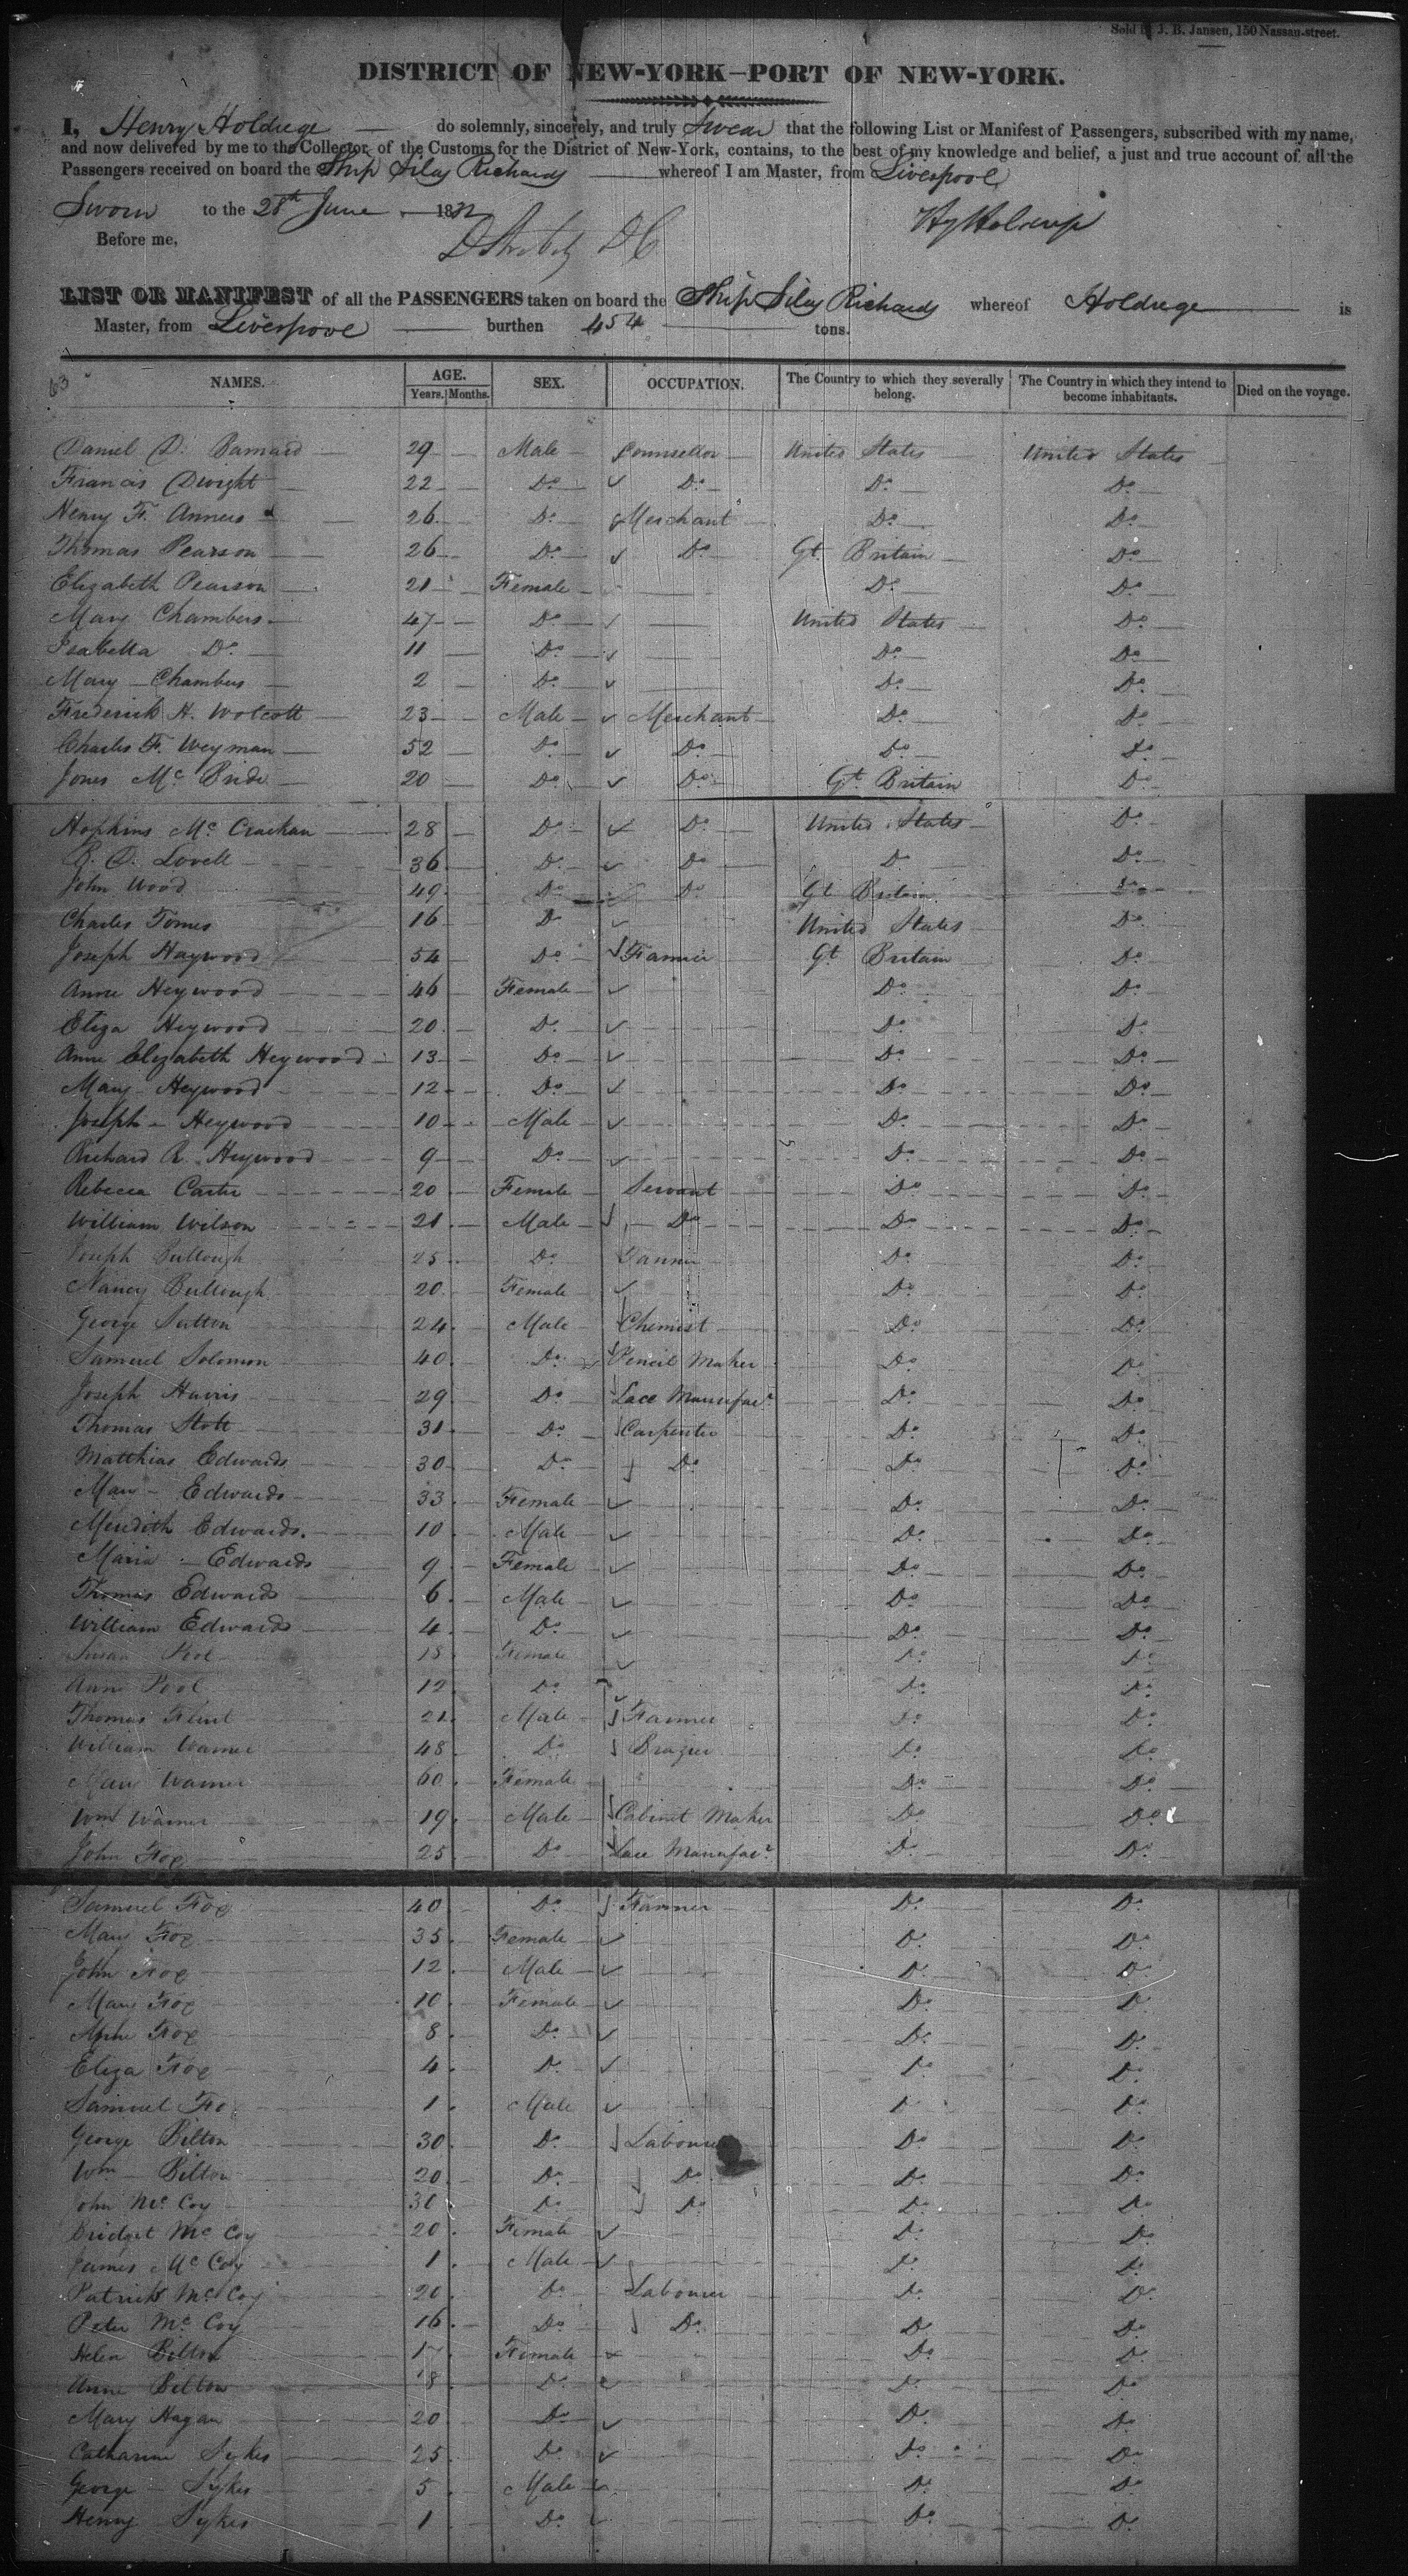 Sold by J. B. Jansen, 150 Nassau-street.
DISTRICT OF NEW-YORK—PORT OF NEW-YORK.
I, Henry Holdrege do solemnly, sincerely, and truly Swear that the following List or Manifest of Passengers, subscribed with my name,
and now delivered by me to the Collector of the Customs for the District of New-York, contains, to the best of my knowledge and belief, a just and true account of all the
Passengers received on board the Ship Silas Richards whereof I am Master, from Liverpool
Sworn to the 28th June 1832
Before me,
LIST OR MANIFEST of all the PASSENGERS taken on board the Ship Silas Richards whereof Holdrege is
Master, from Liverpool burthen 454 tons.
63 NAMES. AGE. Years. Months. SEX. OCCUPATION. The Country to which they severally belong. The Country in which they intend to become inhabitants. Died on the voyage.
Daniel D. Barnard 29 Male Counsellor United States United States
Francis Dwight 22 Do Do Do Do
Henry F. Anners 26 Do Merchant Do Do
Thomas Pearson 26 Do Do Gt Britain Do
Elizabeth Pearson 21 Female Do Do
Mary Chambers 47 Do United States Do
Isabella Do 11 Do Do Do
Mary Chambers 2 Do Do Do
Frederick H. Wolcott 23 Male Merchant Do Do
Charles F. Weyman 52 Do Do Do Do
Jones Mc Bride 20 Do Do Gt Britain Do
Hopkins Mc Crackan 28 Do Do United States Do
R. D. Lovell 36 Do Do Do Do
John Wood 49 Do Do Gt Britain Do
Charles Tomes 16 Do United States Do
Joseph Haywood 54 Do Farmer Gt Britain Do
Anne Heywood 46 Female Do Do
Eliza Heywood 20 Do Do Do
Anne Elizabeth Heywood 13 Do Do Do
Mary Heywood 12 Do Do Do
Joseph Heywood 10 Male Do Do
Richard R. Heywood 9 Do Do Do
Rebecca Carter 20 Female Servant Do Do
William Wilson 21 Male Do Do Do
Joseph Bullough 25 Do Do Do
Nancy Bullough 20 Female Do Do
George Sutton 24 Male Chemist Do Do
Samuel Solomon 40 Do Pencil Maker Do Do
Joseph Harris 29 Do Lace Manufacr Do Do
Thomas Stott 31 Do Carpenter Do Do
Matthias Edwards 30 Do Do Do Do
Mary Edwards 33 Female Do Do
Meredith Edwards 10 Male Do Do
Maria Edwards 9 Female Do Do
Thomas Edwards 6 Male Do Do
William Edwards 4 Do Do Do
Susan 18 Female Do Do
Ann Pool 12 Do Do Do
Thomas 21 Male Farmer Do Do
William Warner 48 Do Brazier Do Do
Mary Warner 60 Female Do Do
Wm Warner 19 Male Cabinet Maker Do Do
John Fox 25 Do Lace Manufacr Do Do
Samuel Fox 40 Do Farmer Do Do
Mary Fox 35 Female Do Do
John Fox 12 Male Do Do
Mary Fox 10 Female Do Do
Anne Fox 8 Do Do Do
Eliza Fox 4 Do Do Do
Samuel Fo 1 Male Do Do
George Bilton 30 Do Labourer Do Do
Wm Bilton 20 Do Do Do Do
John Mc Coy 30 Do Do Do Do
Bridget Mc Coy 20 Female Do Do
James Mc Coy 1 Male Do Do
Patrick Mc Coy 20 Do Labourer Do Do
Peter Mc Coy 16 Do Do Do Do
Helen Bilton 17 Female Do Do
Anne Bilton 18 Do Do Do
Mary Hagan 20 Do Do Do
Catharine Sykes 25 Do Do Do
George Sykes 5 Male Do Do
Henry Sykes 1 Do Do Do